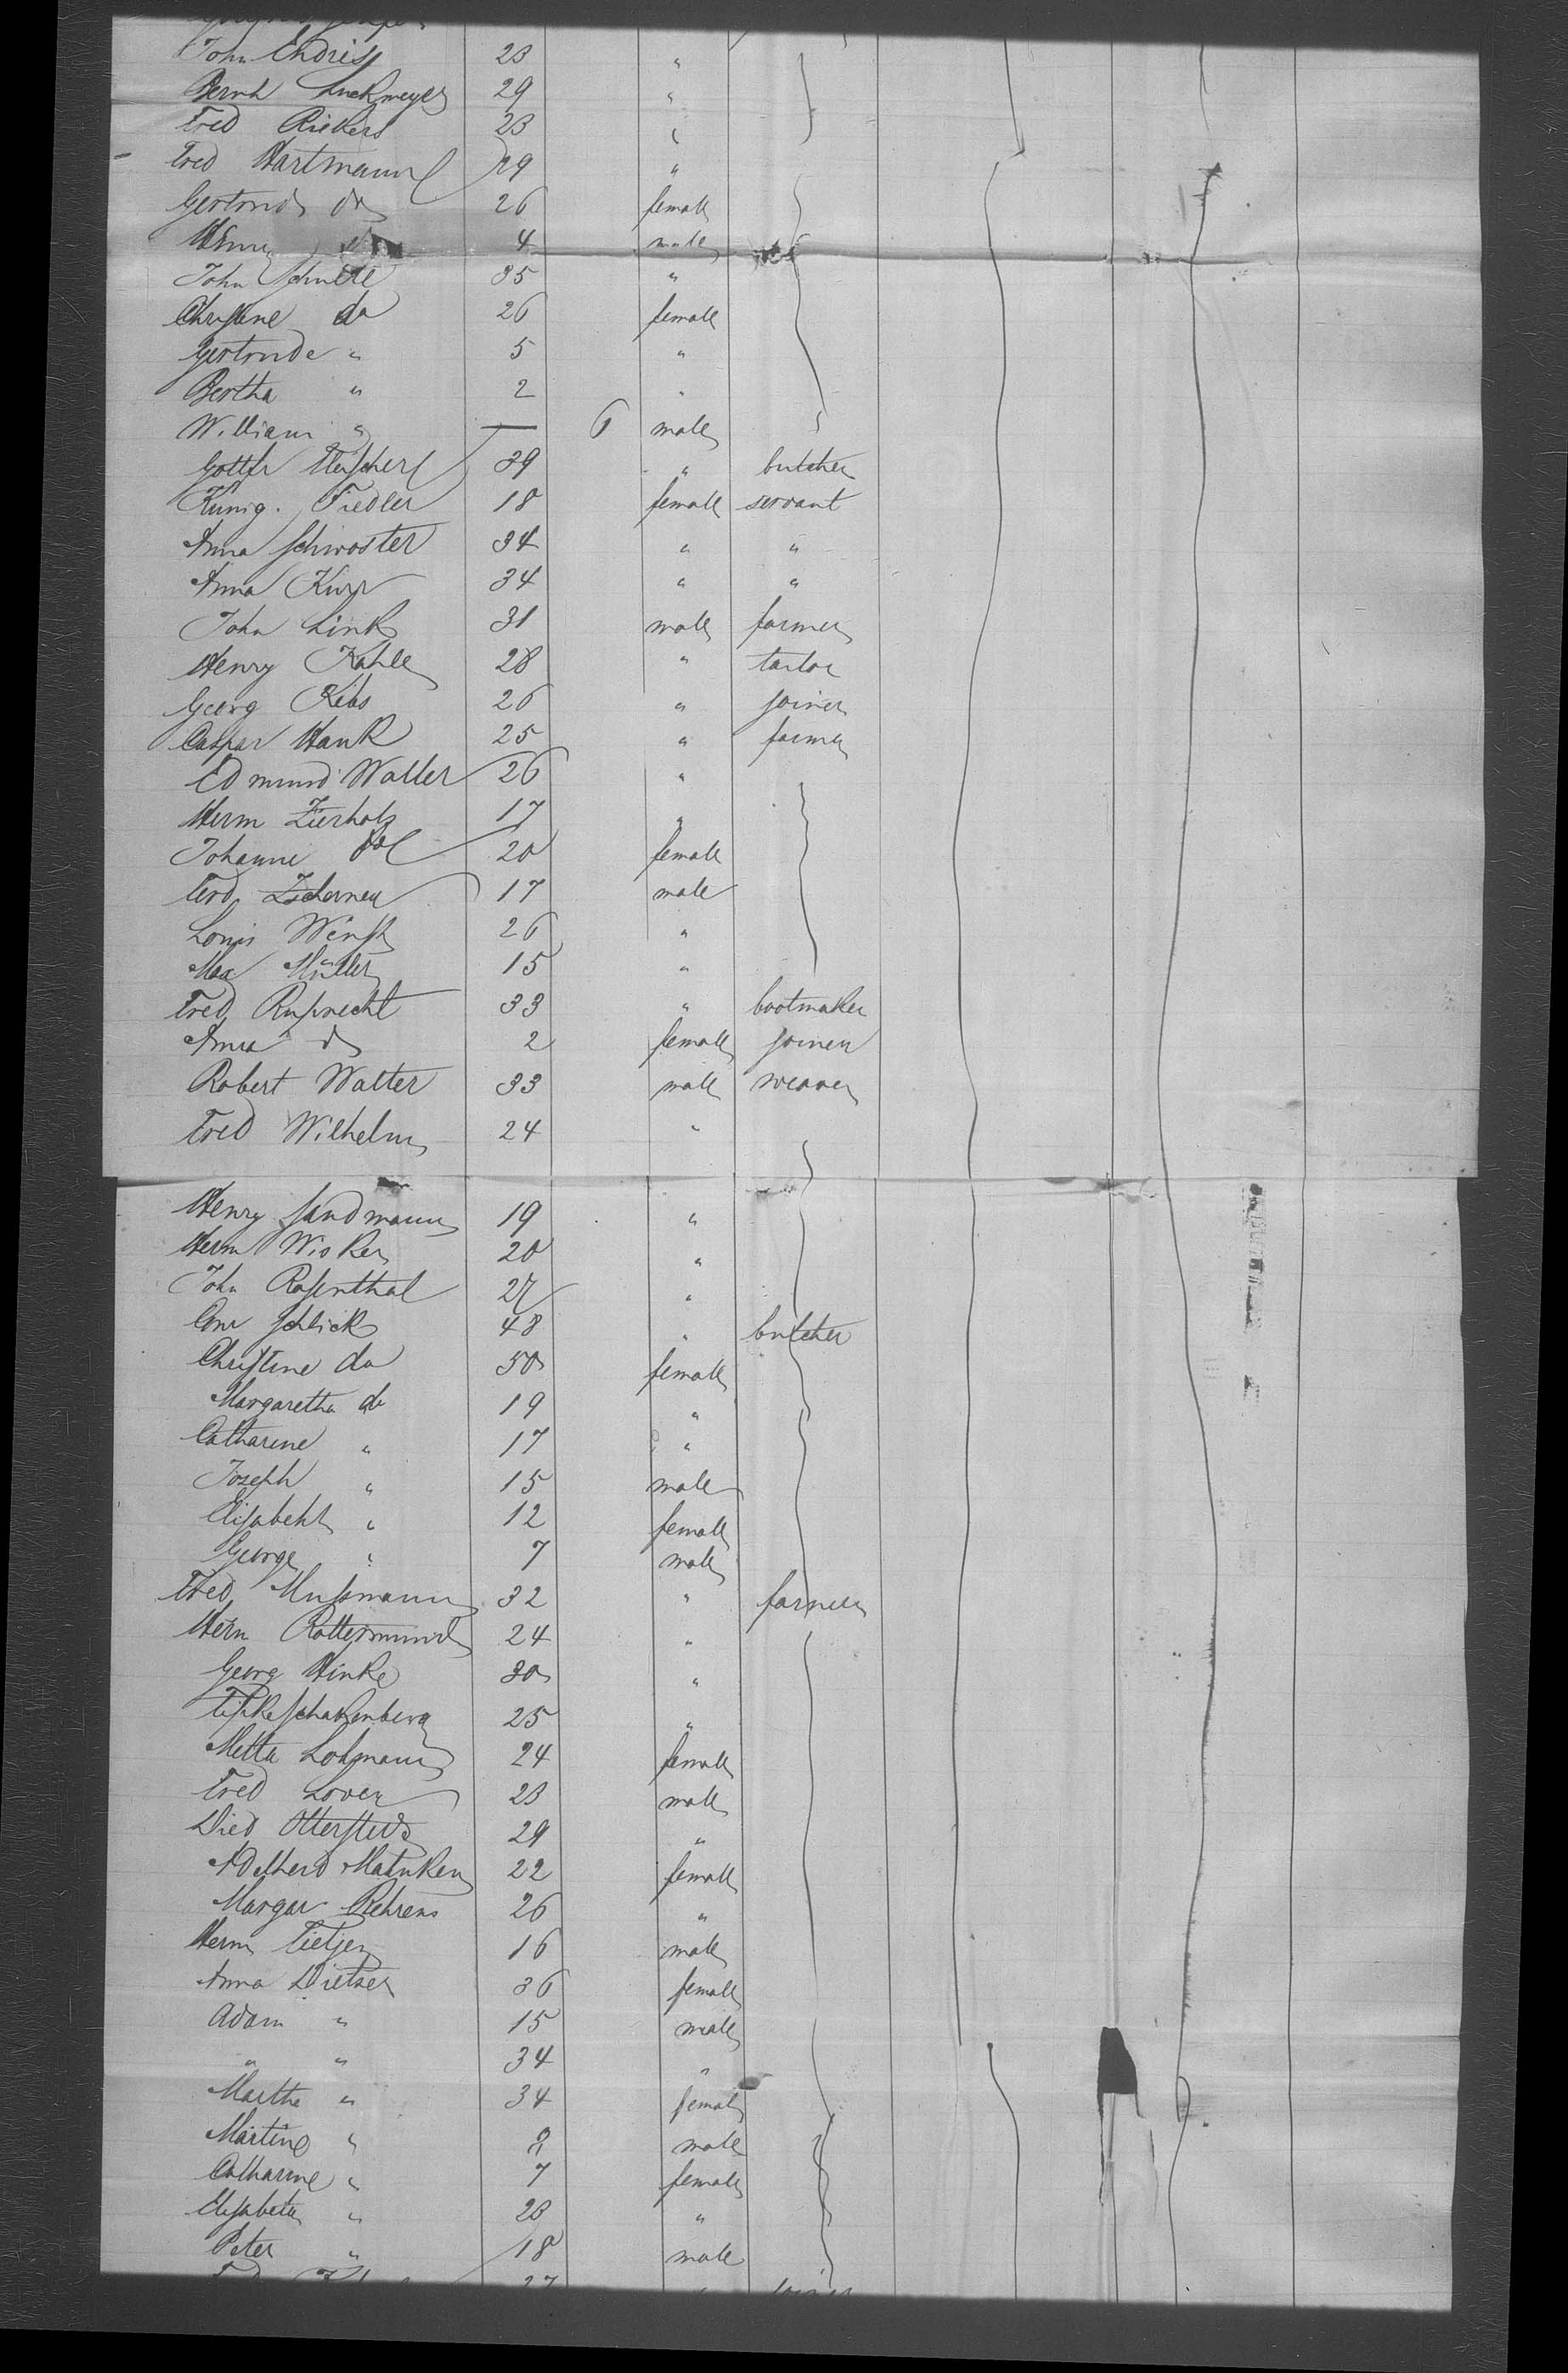 John Endriss 23 "
Bernh Luckmeyer 29 "
Fred Riekers 23 "
Fred Hartmann 29 "
Gertrud do 26 female
Henry do 4 male
John Schulte 35 "
Christine do 26 female
Gertrude " 5 "
Bertha " 2 "
William " — 6 male
Gottfr 39 " butcher
Kunig. Fiedler 18 female servant
Anna Schwoster 34 " "
Anna Kurr 34 " "
John Link 31 male farmer
Henry Kahle 28 " tailor
Georg Kebs 26 " joiner
Caspar Hank 25 " farmer
Edmund Walter 26 "
Herm Zierholz 17 "
Johanne do 20 female
Ferd. Zscherneu 17 male
Louis Wenst 26 "
Max Müller 15 "
Fred Ruprecht 33 " bootmaker
Anna do 2 female joiner
Robert Walter 33 male weaver
Fred Wilhelm 24 "
Henry Sandmann 19 "
Herm Wisker 20 "
John Rosenthal 27 "
Conr Schlick 48 " butcher
Christine do 50 female
Margaretha do 19 "
Catharine " 17 "
Joseph " 15 male
Elisabeht " 12 female
George " 7 male
Fred Mussmann 32 " farmer
Herm Rottermund 24 "
Georg Hinke 30 "
Schakenberg 25 "
Metta Lohmann 24 female
Fred Lover 23 male
Died Ottersted 29 "
Adelheid Mahnken 22 female
Margar Behrens 26 "
Herm Tietjen 16 male
Anna Dietzer 36 female
Adam " 15 male
" " 34 "
Martha " 34 female
Martin " 9 male
Catharine " 7 female
Elisabeta " 23 "
Peter " 18 male
27 " joiner